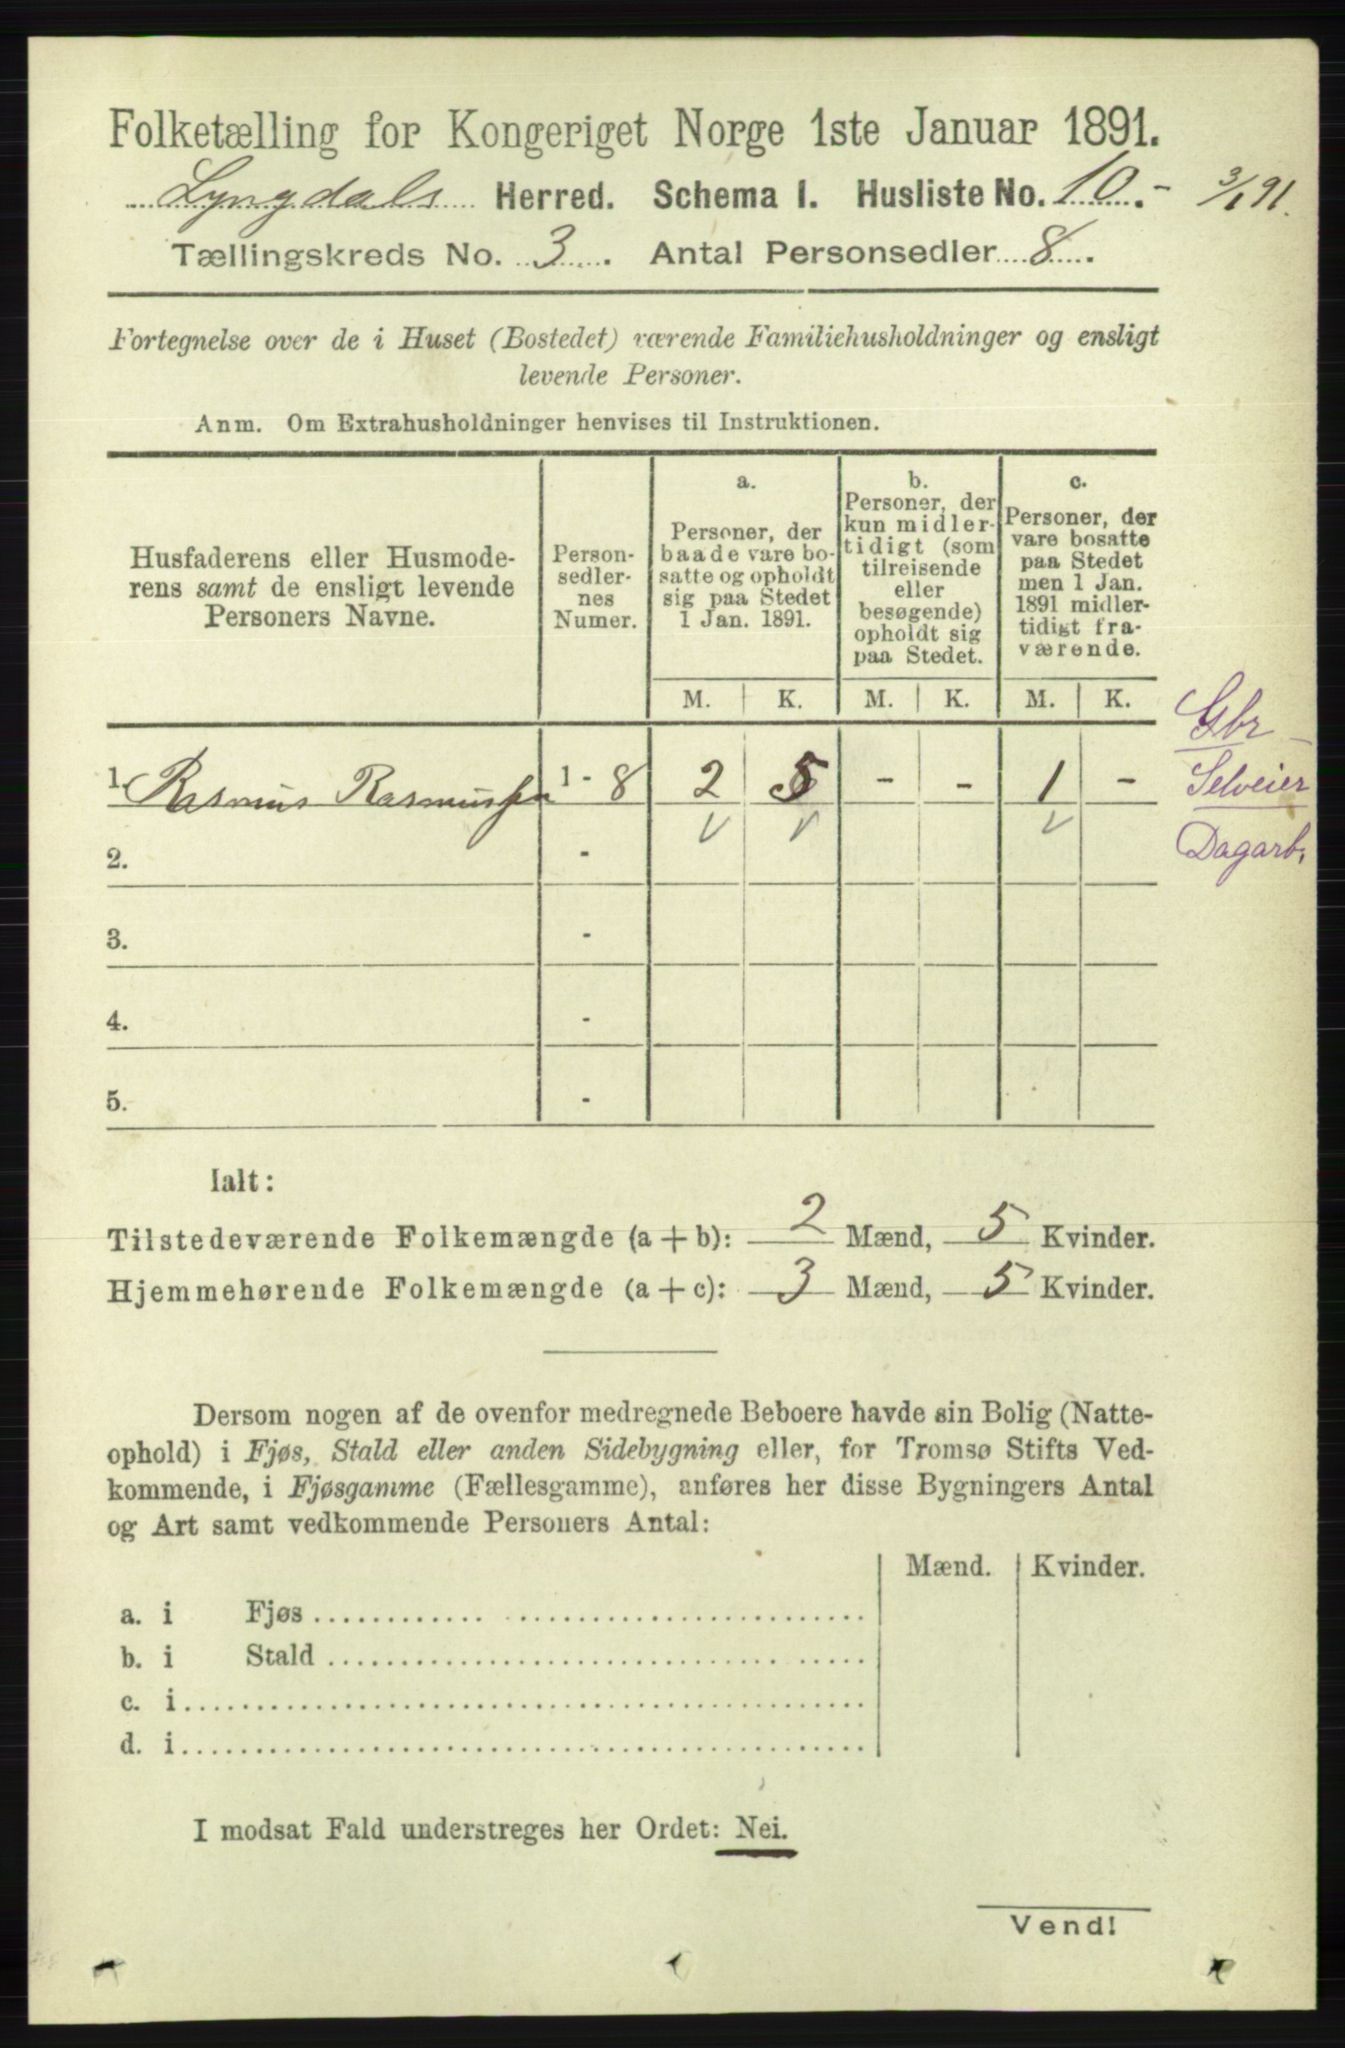 Folketælling for Kongeriget Norge 1ste Januar 1891.
Lyngdals Herred. Schema I. Husliste No. 10.- 3/1 91.
Tællingskreds No. 3. Antal Personsedler 8.
Fortegnelse over de i Huset (Bostedet) værende Familiehusholdninger og ensligt
levende Personer.
Anm. Om Extrahusholdninger henvises til Instruktionen.
Husfaderens eller Husmode-
rens samt de ensligt levende
Personers Navne.
Person-
sedler-
nes
Numer.
a.
Personer, der
baade vare bo-
satte og opholdt
sig paa Stedet
1 Jan. 1891.
b.
Personer, der
kun midler-
tidigt (som
tilreisende
eller
besøgende)
opholdt sig
paa Stedet.
c.
Personer, der
vare bosatte
paa Stedet
men 1 Jan.
1891 midler-
tidigt fra-
værende.
M. K. M. K. M. K.
Gbr
1. Rasmus Rasmussen 1 - 8 2 5 - - 1 - Selveier
2. - Dagarb.
3. -
4. -
5. -
Ialt:
Tilstedeværende Folkemængde (a + b): 2 Mænd, 5 Kvinder.
Hjemmehørende Folkemængde (a + c): 3 Mænd, 5 Kvinder.
Dersom nogen af de ovenfor medregnede Beboere havde sin Bolig (Natte-
ophold) i Fjøs, Stald eller anden Sidebygning eller, for Tromsø Stifts Ved-
kommende, i Fjøsgamme (Fællesgamme), anføres her disse Bygningers Antal
og Art samt vedkommende Personers Antal:
Mænd. Kvinder.
a. i Fjøs
b. i Stald
c. i
d. i
I modsat Fald understreges her Ordet: Nei.
Vend!